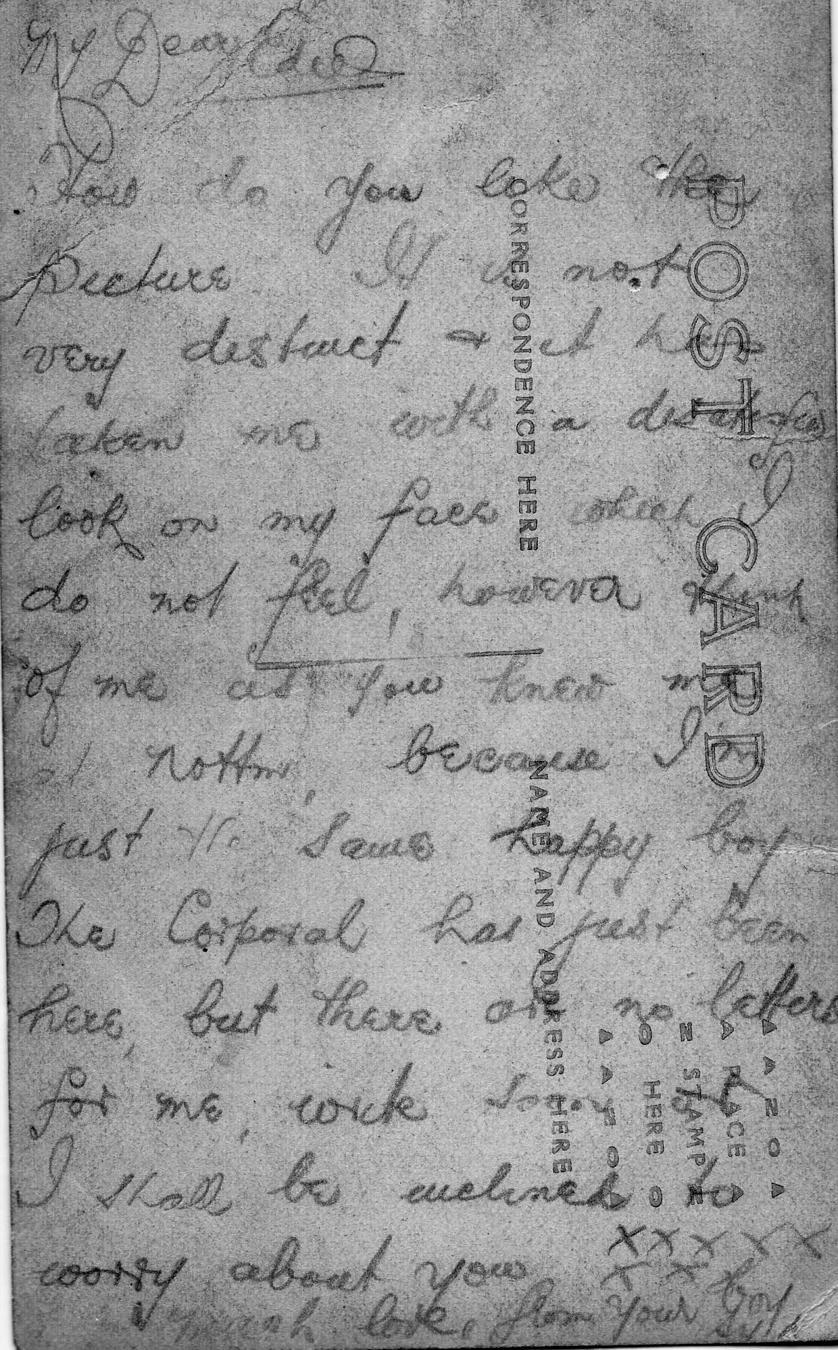 My Dear Edie
How do you like the
picture It is not
very distinct & it has
taken me with a dissatisfied
look on my face which I
do not feel, however think
of me as you knew me
at Nottm, because I'm
just the same happy boy
The Corporal has just been
here, but there are no letters
for me, write soon or
I shall be inclined to
worry about you xxxxx
xxx
much love, from your boy
POST CARD
CORRESPONDENCE HERE
NAME AND ADDRESS HERE
AZO
PLACE
STAMP
HERE